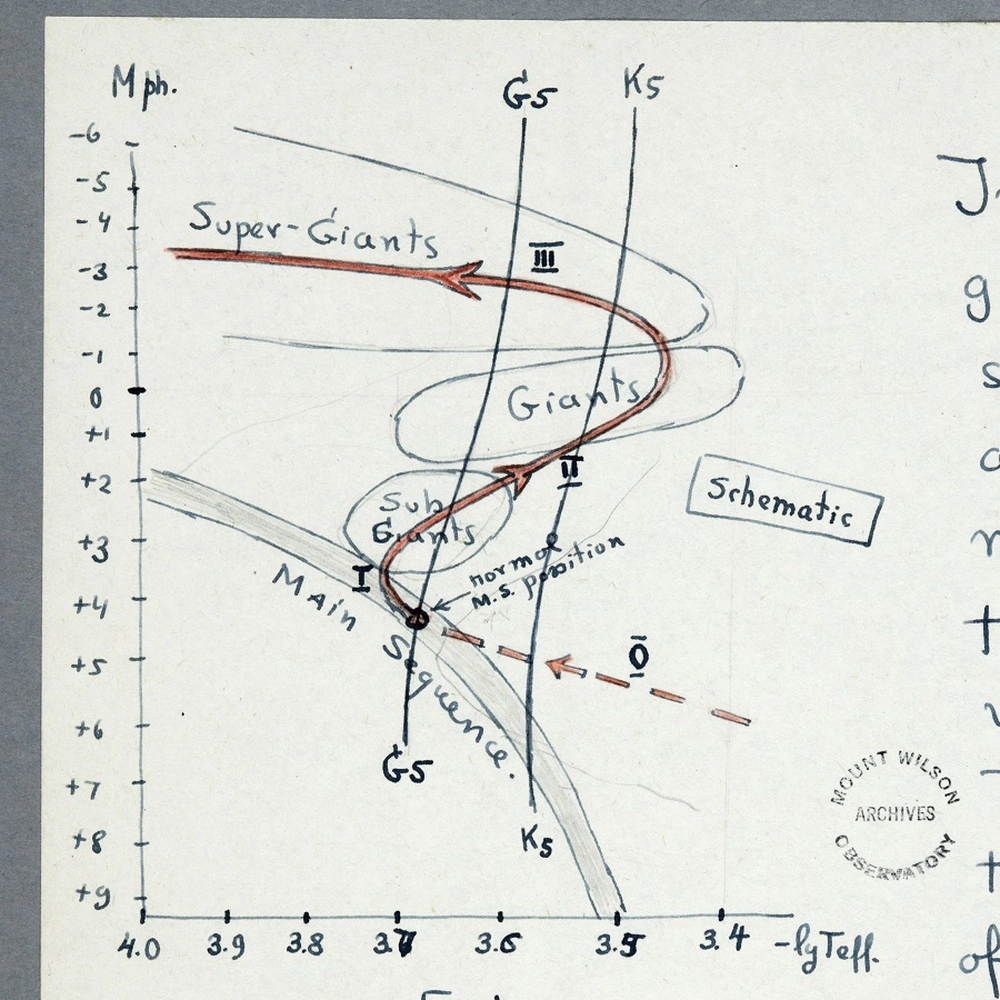 M ph.
G5
K5
-6
-5
-4
-3
-2
-1
0
+1
+2
+3
+4
+5
+6
+7
+8
+9
Super-Giants
III
Giants
II
Sub
Giants
Schematic
I
normal
M.S. position
Main Sequence.
0
G5
K5
4.0 3.9 3.8 3.7 3.6 3.5 3.4 -lgTeff.
MOUNT WILSON
ARCHIVES
OBSERVATORY
J.
g
s
of